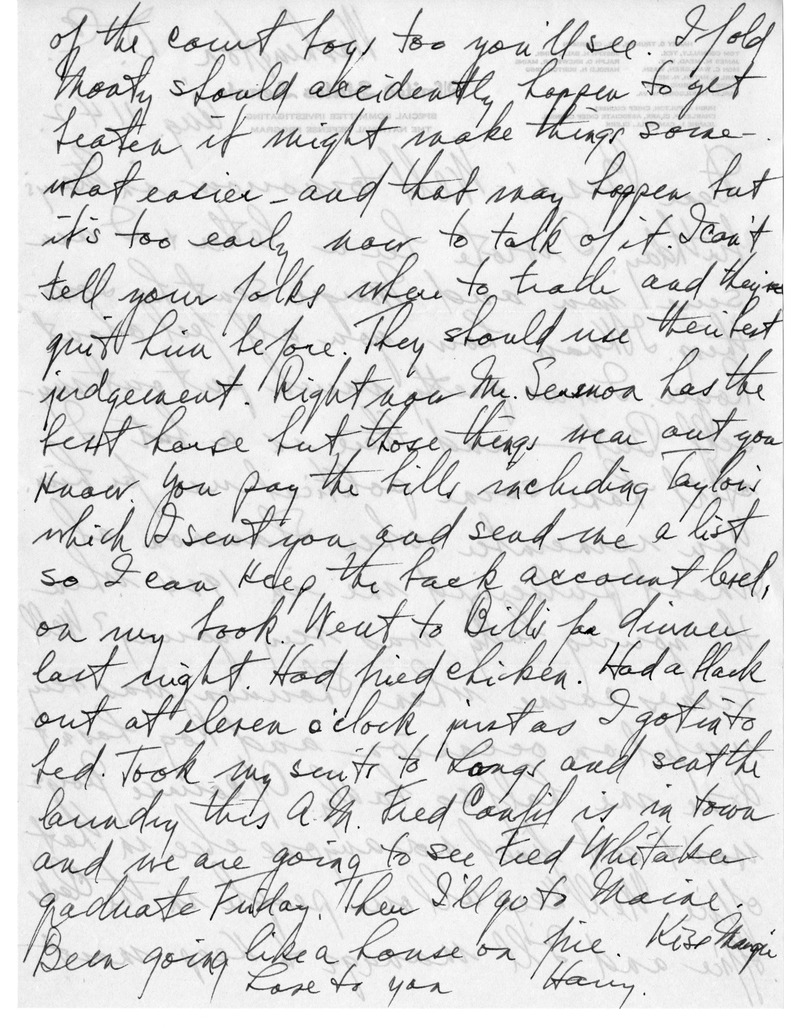 of the court boys too you'll see. If old
Monty should accidently happen to get
beaten it might make things some-
what easier - and that may happen but
it's too early now to talk of it. I can't
tell your folks where to trade and they've
quit him before. They should use their best
judgement. Right now Mr. Sermon has the
best horse but those things wear out you
know. You pay the bills including Taylor's
which I sent you and send me a list
so I can keep the back account level,
on my book. Went to Bill's for dinner
last night. Had fried chicken. Had a black
out at eleven o'clock just as I got into
bed. Took my suits to Longs and sent the
laundry this A.M. Fred Canfil is in town
and we are going to see Fred Whitaker
graduate Friday. Then I'll go to Maine.
Been going like a house on fire. Kiss Margie
Love to you Harry.